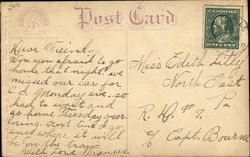 Post Card
Dear Friend,
Were you afraid to go
home that night, we
missed our car for
C.S. Monday eve. so
had to wait and
go home Tuesday mor
ning.
what it will
be on the
With Love Frances
Miss Edith Lilly
North East
R. D. # 7. Pa
c/o Capt. Bourne